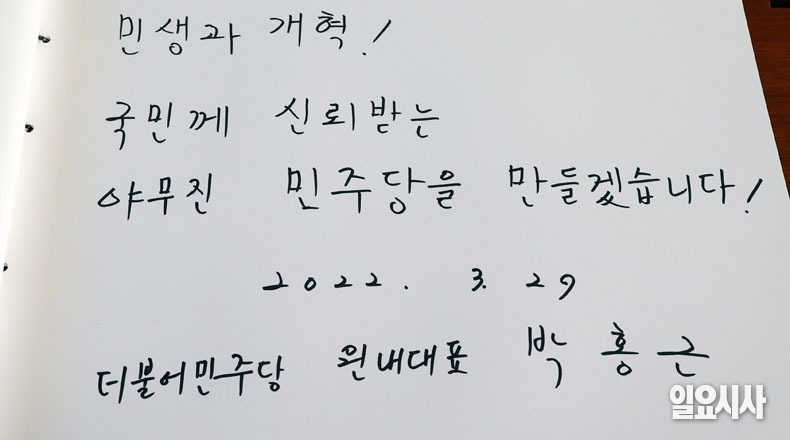 민생과 개혁!
국민께 신뢰받는
야무진 민주당을 만들겠습니다!
2022. 3. 29
더불어민주당 원내대표 박홍근
일요시사